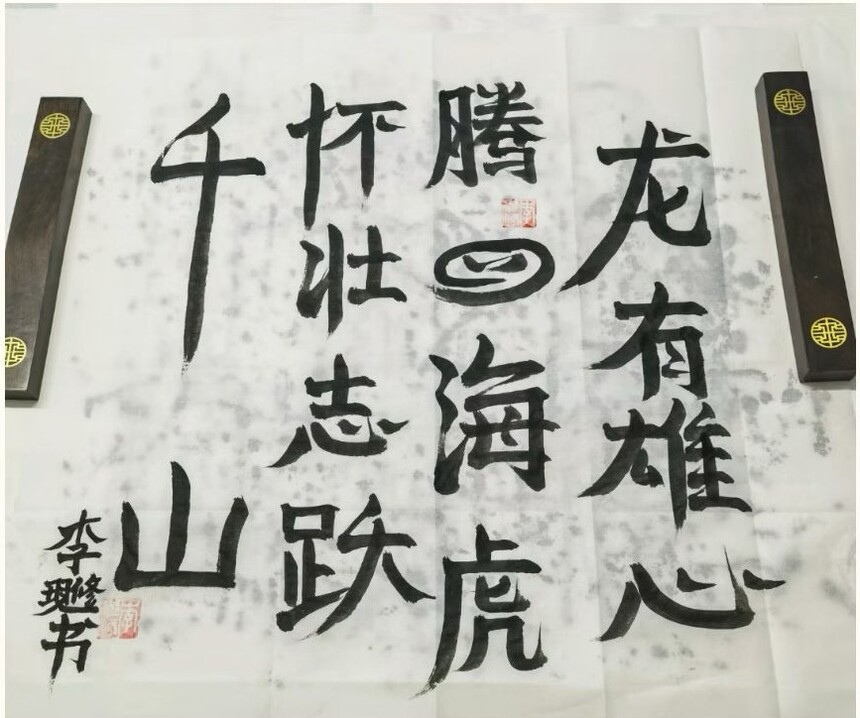 龙有雄心
腾四海虎
怀壮志跃
千山
李
书